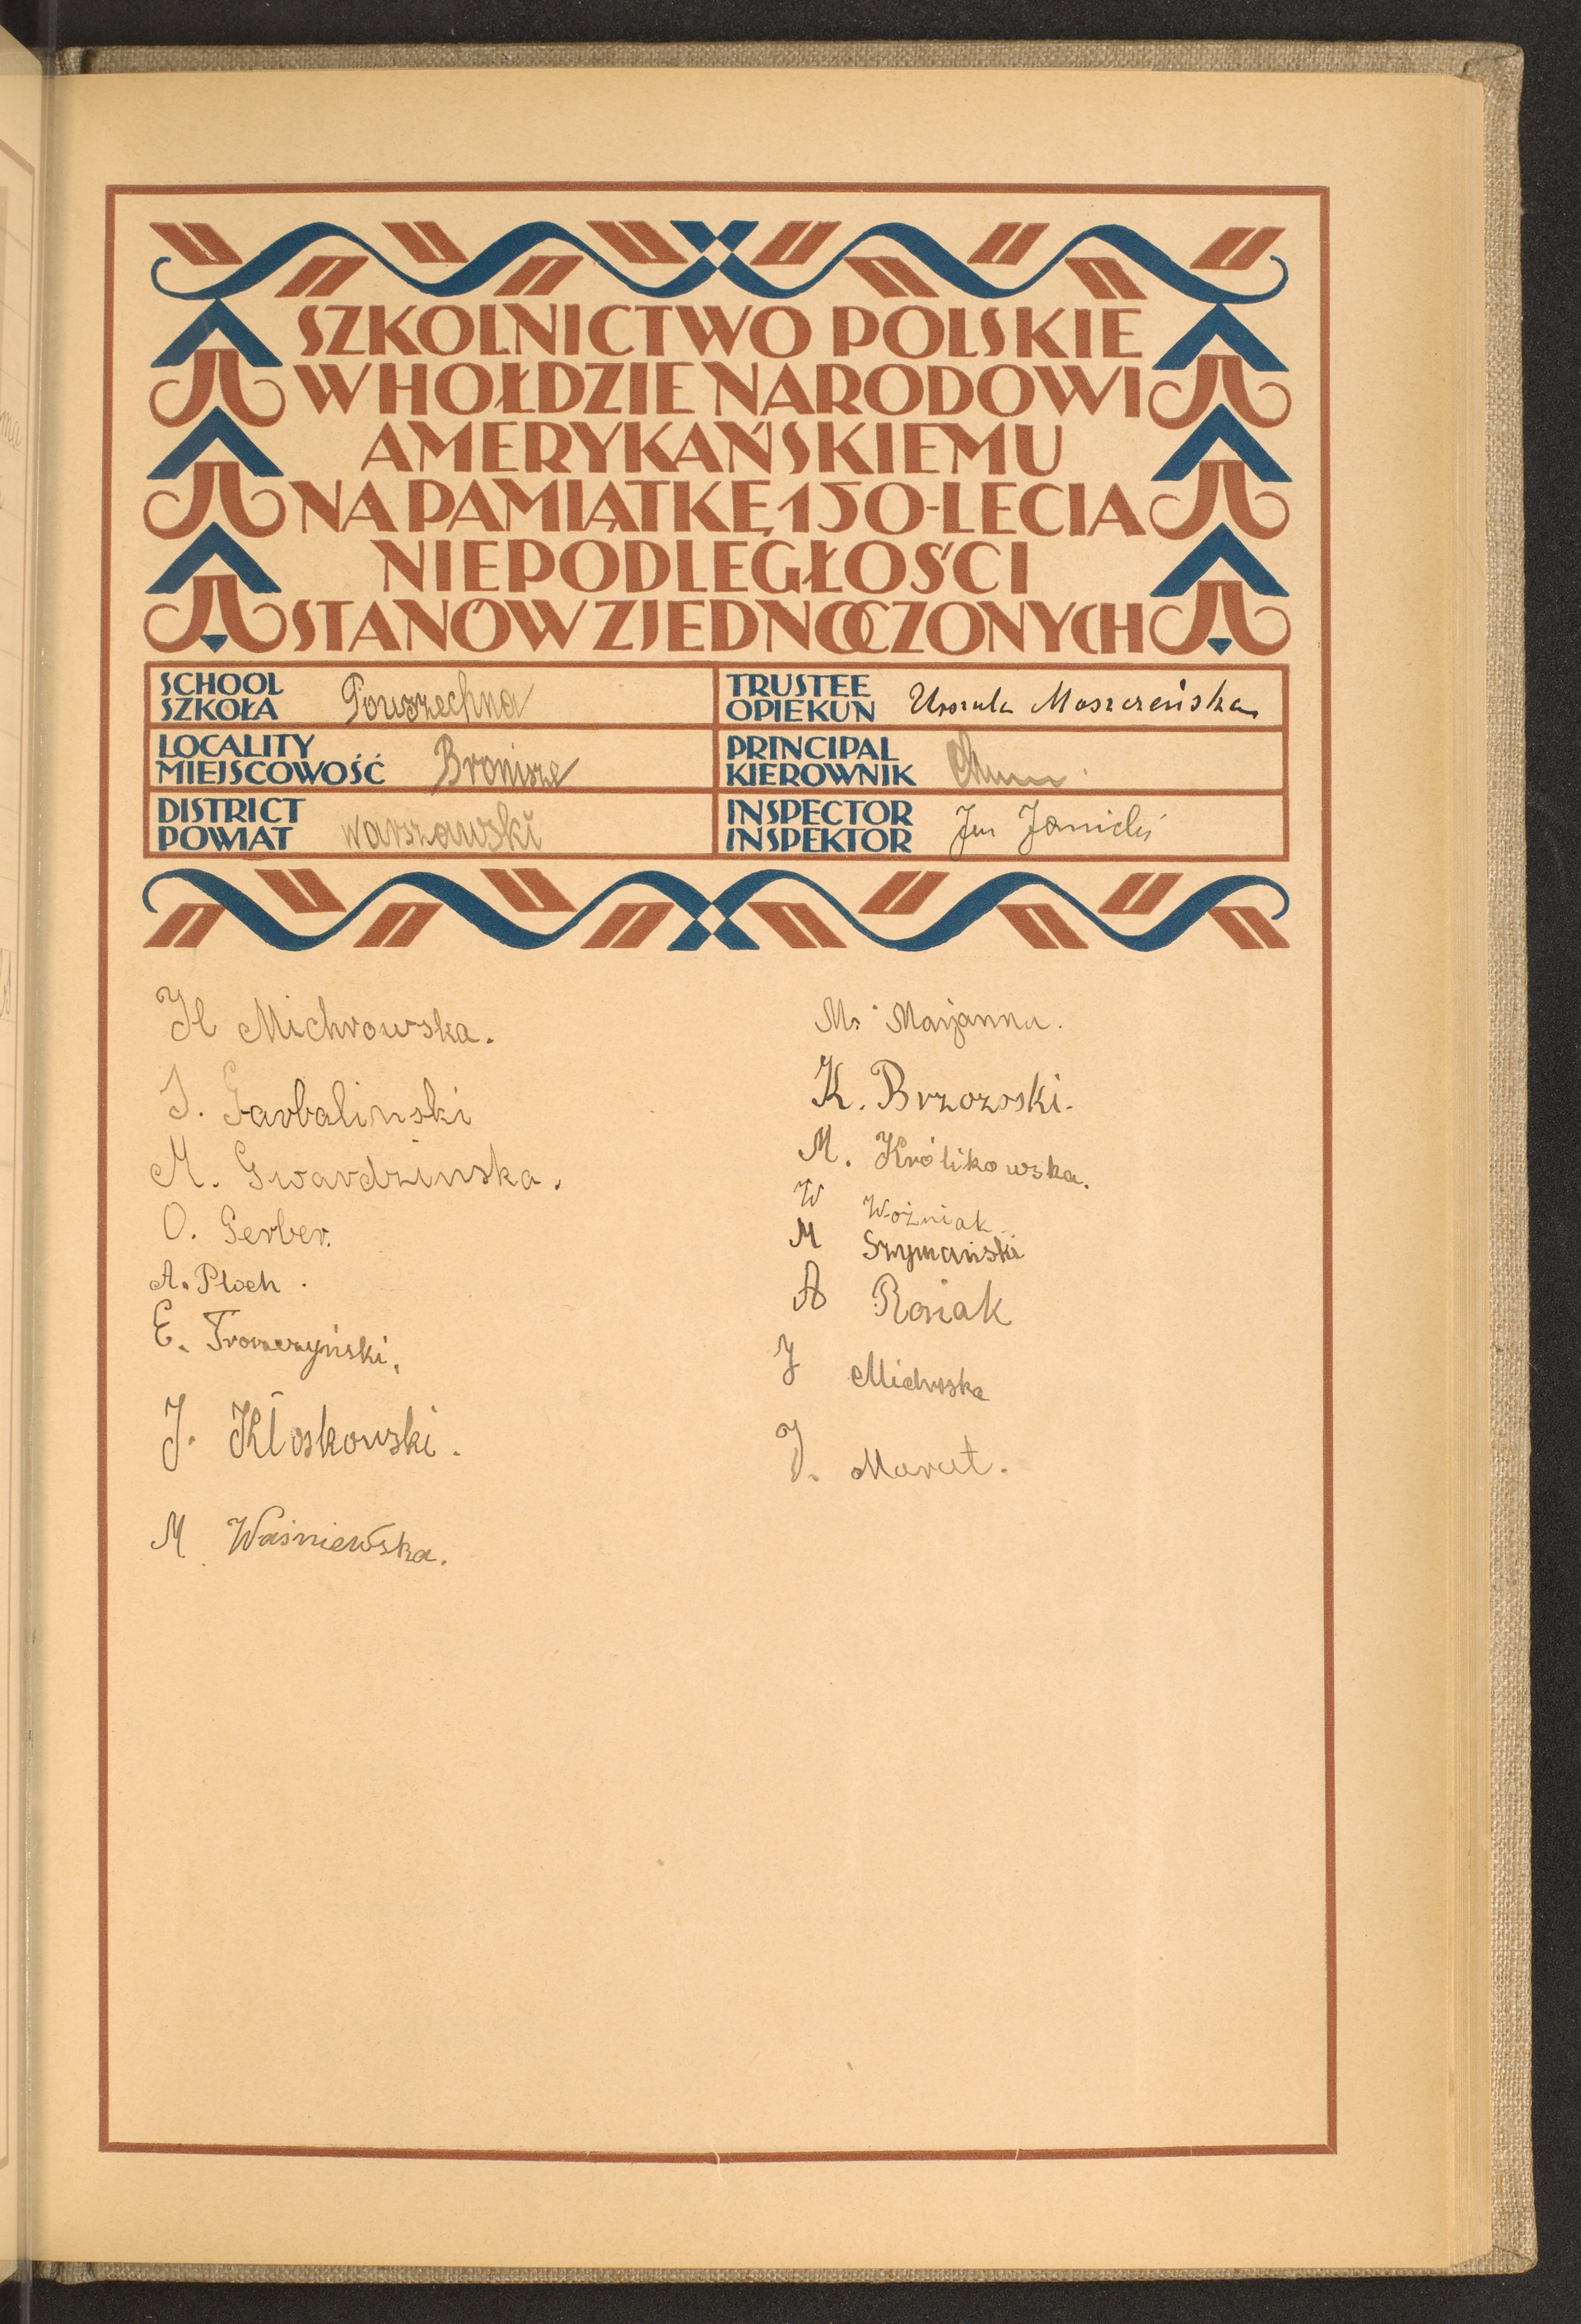 SZKOLNICTWO POLSKIE
W HOŁDZIE NARODOWI
AMERYKAŃSKIEMU
NA PAMIĄTKĘ 150-LECIA
NIEPODLEGŁOŚCI
STANÓW ZJEDNOCZONYCH
SCHOOL
SZKOŁA
Powszechna
TRUSTEE
OPIEKUN
Urszula Moszczeńska
LOCALITY
MIEJSCOWOŚĆ
Bronisze
PRINCIPAL
KIEROWNIK
DISTRICT
POWIAT
warszawski
INSPECTOR
INSPEKTOR
Jan Janicki
H Michrowska.
J. Garbalinski
M. Gwardzinska.
O. Gerber.
A. Płoch.
E. Tromczyński.
J. Kłoskowski.
M Waśniewska.
M. Marjanna.
K. Brzozoski.
M. Królikowska.
W Woźniak
M Szymański
A Rosiak
J Michroska
J. Marat.